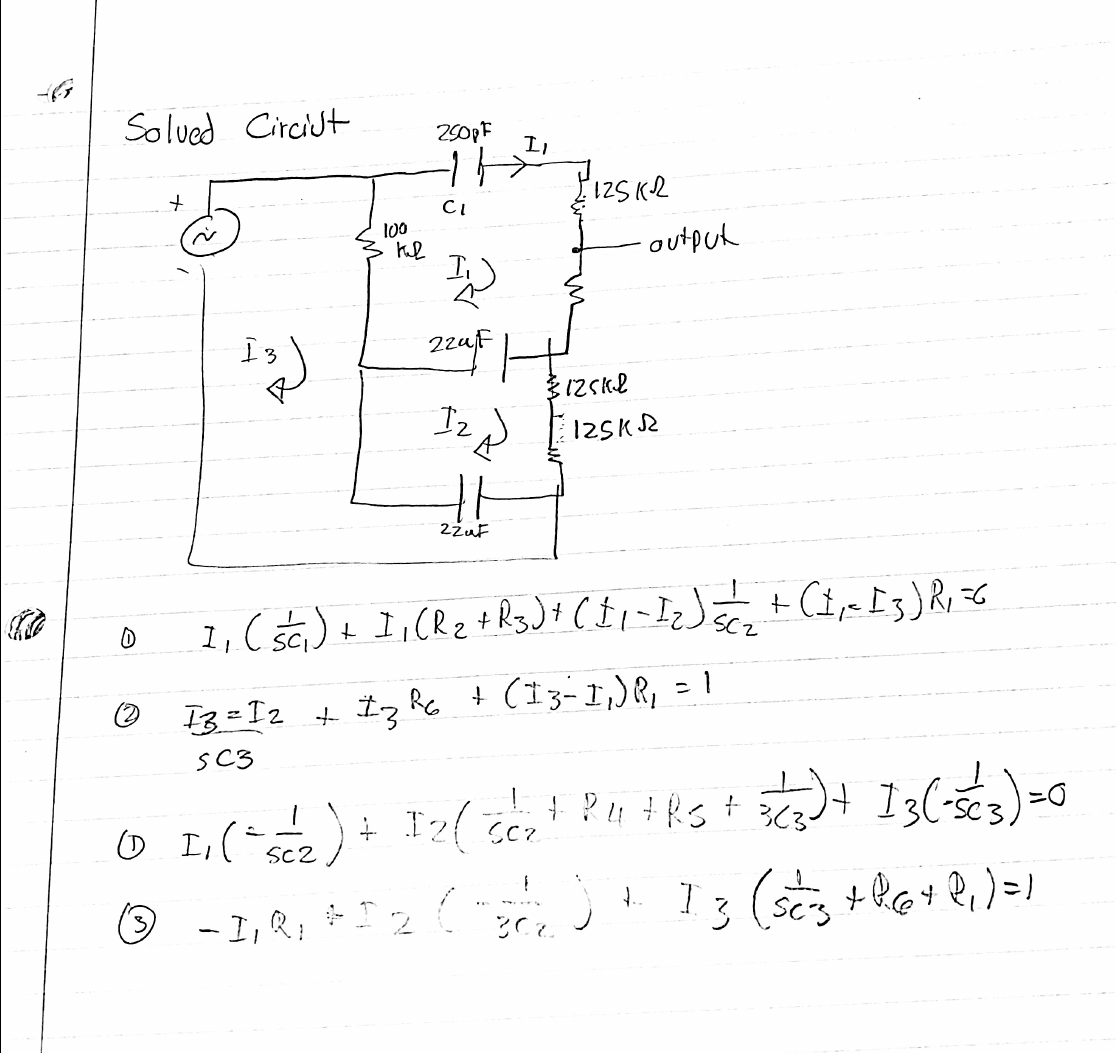 Solved Circiut
250pF
I₁
C₁
125KΩ
+
100
KΩ
output
I₁
-
I3
22uF
125KΩ
I2
125KΩ
22uF
① I₁(1/SC₁) + I₁(R₂+R₃)+(I₁-I₂)1/SC₂ + (I₁-I₃)R₁=0
② I3=I2/SC3 + I3R6 + (I3-I₁)R₁ = 1
① I₁(-1/SC2) + I2(1/SC2 + R4 + R5 + 1/3C3) + I3(-1/SC3)=0
③ -I₁R₁ + I2(-1/3C2) + I3(1/SC3 + R6 + R₁)=1